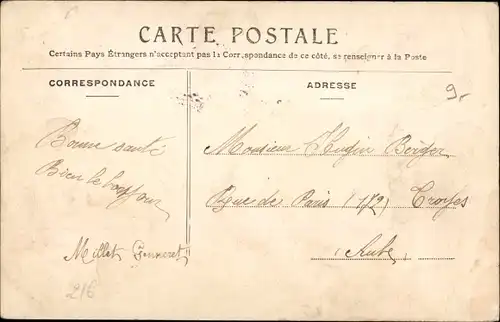 CARTE POSTALE
Certains Pays Étrangers n'acceptant pas la Correspondance de ce côté, se renseigner à la Poste
CORRESPONDANCE
ADRESSE
9,-
Bonne santé
Bien le bonjour
Millet
216
Monsieur Hugin Berger
Rue de Paris (172) Troyes
Aube